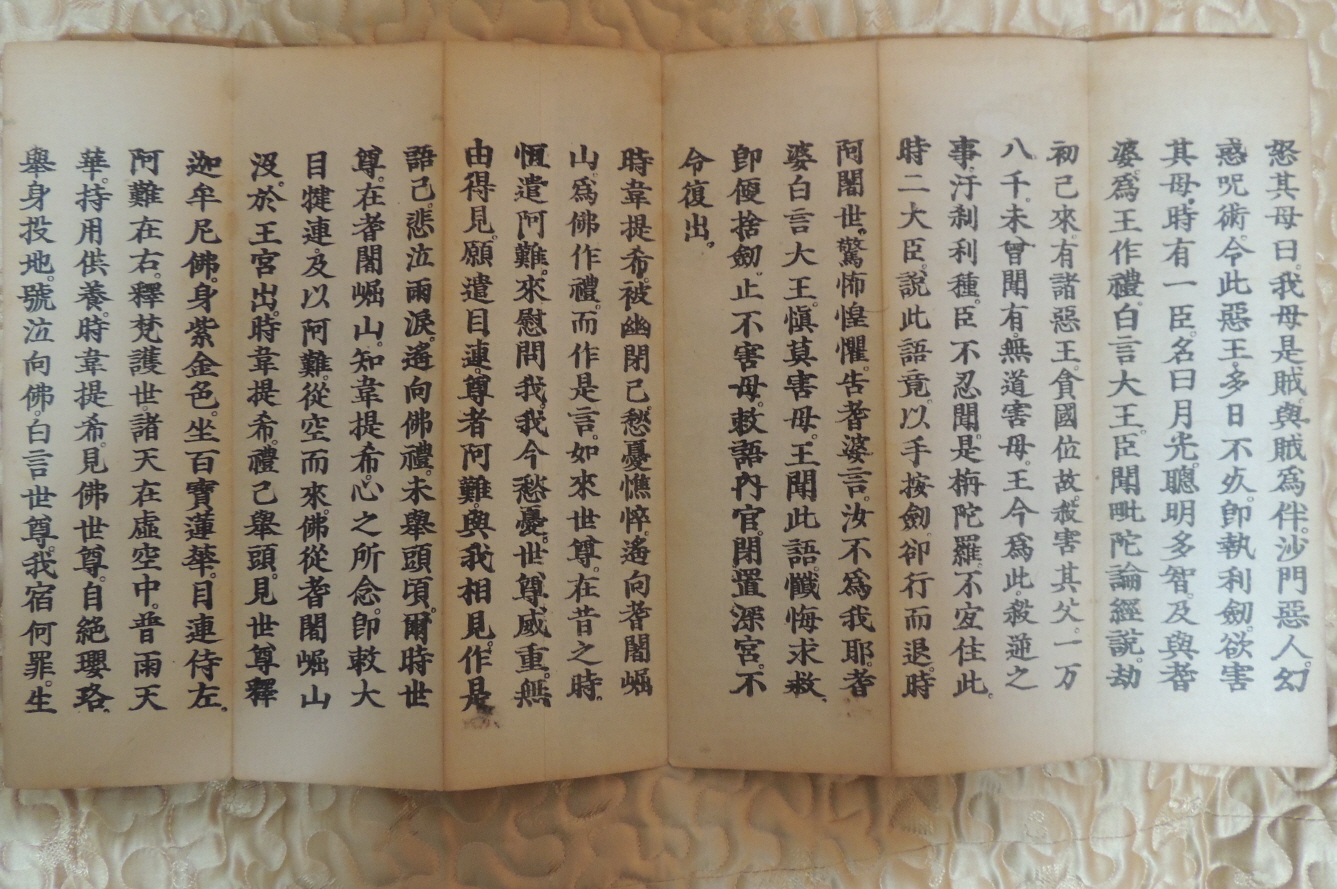 怒其母曰。我母是賊。與賊爲伴。沙門惡人。幻
惑呪術。令此惡王。多日不死。卽執利劒。欲害
其母。時有一臣。名曰月光。聰明多智。及與耆
婆。爲王作禮。白言大王。臣聞毗陀論經說。劫
初已來。有諸惡王。貪國位故。殺害其父。一万
八千。未曾聞有。無道害母。王今爲此。殺逆之
事。汙刹利種。臣不忍聞。是栴陀羅。不宜住此。
時二大臣。說此語竟。以手按劒。卻行而退。時
阿闍世。驚怖惶懼。告耆婆言。汝不爲我耶。耆
婆白言大王。愼莫害母。王聞此語。懺悔求救。
卽便捨劒。止不害母。敕語內官。閉置深宮。不
令復出。
時韋提希。被幽閉已。愁憂憔悴。遙向耆闍崛
山。爲佛作禮。而作是言。如來世尊。在昔之時。
恆遣阿難。來慰問我。我今愁憂。世尊威重。無
由得見。願遣目連。尊者阿難。與我相見。作是
語已。悲泣雨淚。遙向佛禮。未舉頭頃。爾時世
尊。在耆闍崛山。知韋提希。心之所念。卽敕大
目犍連。及以阿難。從空而來。佛從耆闍崛山
沒。於王宮出。時韋提希。禮已舉頭。見世尊釋
迦牟尼佛。身紫金色。坐百寶蓮華。目連侍左。
阿難在右。釋梵護世。諸天在虛空中。普雨天
華。持用供養。時韋提希。見佛世尊。自絕瓔珞。
舉身投地。號泣向佛。白言世尊。我宿何罪。生